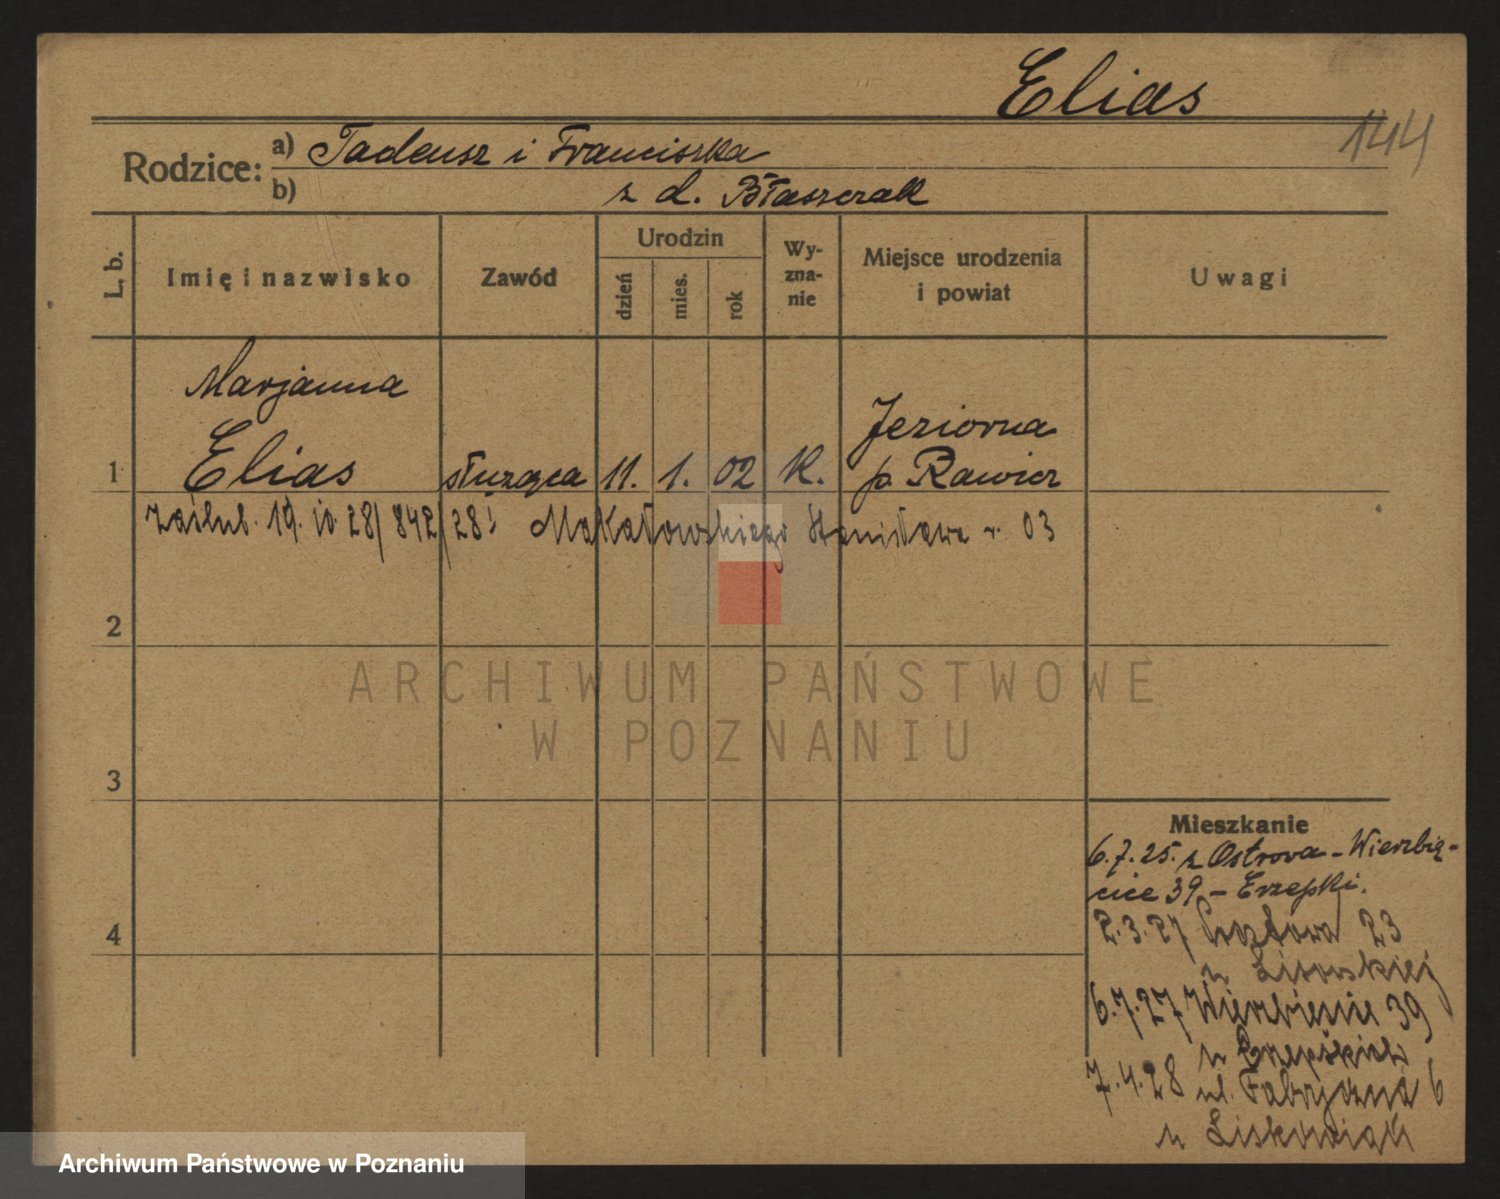 Elias
144
Rodzice: a) Tadeusz i Franciszka
b) z d. Błaszczak
L. b.
Imię i nazwisko
Zawód
Urodzin
dzień
mies.
rok
Wy-
zna-
nie
Miejsce urodzenia
i powiat
Uwagi
Marjanna
Jeziorna
1 Elias służąca 11. 1. 02 K. p. Rawicz
zaślub. 19. 10. 28/ 842/28! Makałowskiego Stanisława r. 03
2
ARCHIWUM PAŃSTWOWE
W POZNANIU
3
4
Mieszkanie
6.7.25. z Ostrova - Wierzbię-
cice 39 - Erzepki.
2.3.27 23
u Lisowskiej
6.7.27 39
u
7.4.28 ul. Fabryczna 6
u
Archiwum Państwowe w Poznaniu